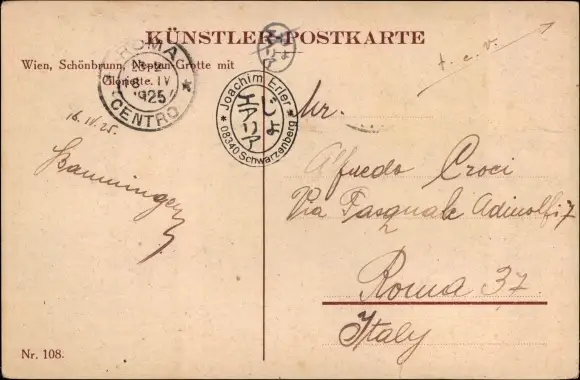 KÜNSTLER-POSTKARTE
Wien, Schönbrunn, Neptun-Grotte mit
Gloriette.
ROMA
1925
CENTRO
Joachim Erler
08340 Schwarzenberg
t. c. v.
16.IV.25.
Mr.
Alfredo Croci
Via Pasquale Adinolfi 7
Roma 37
Italy
Nr. 108.